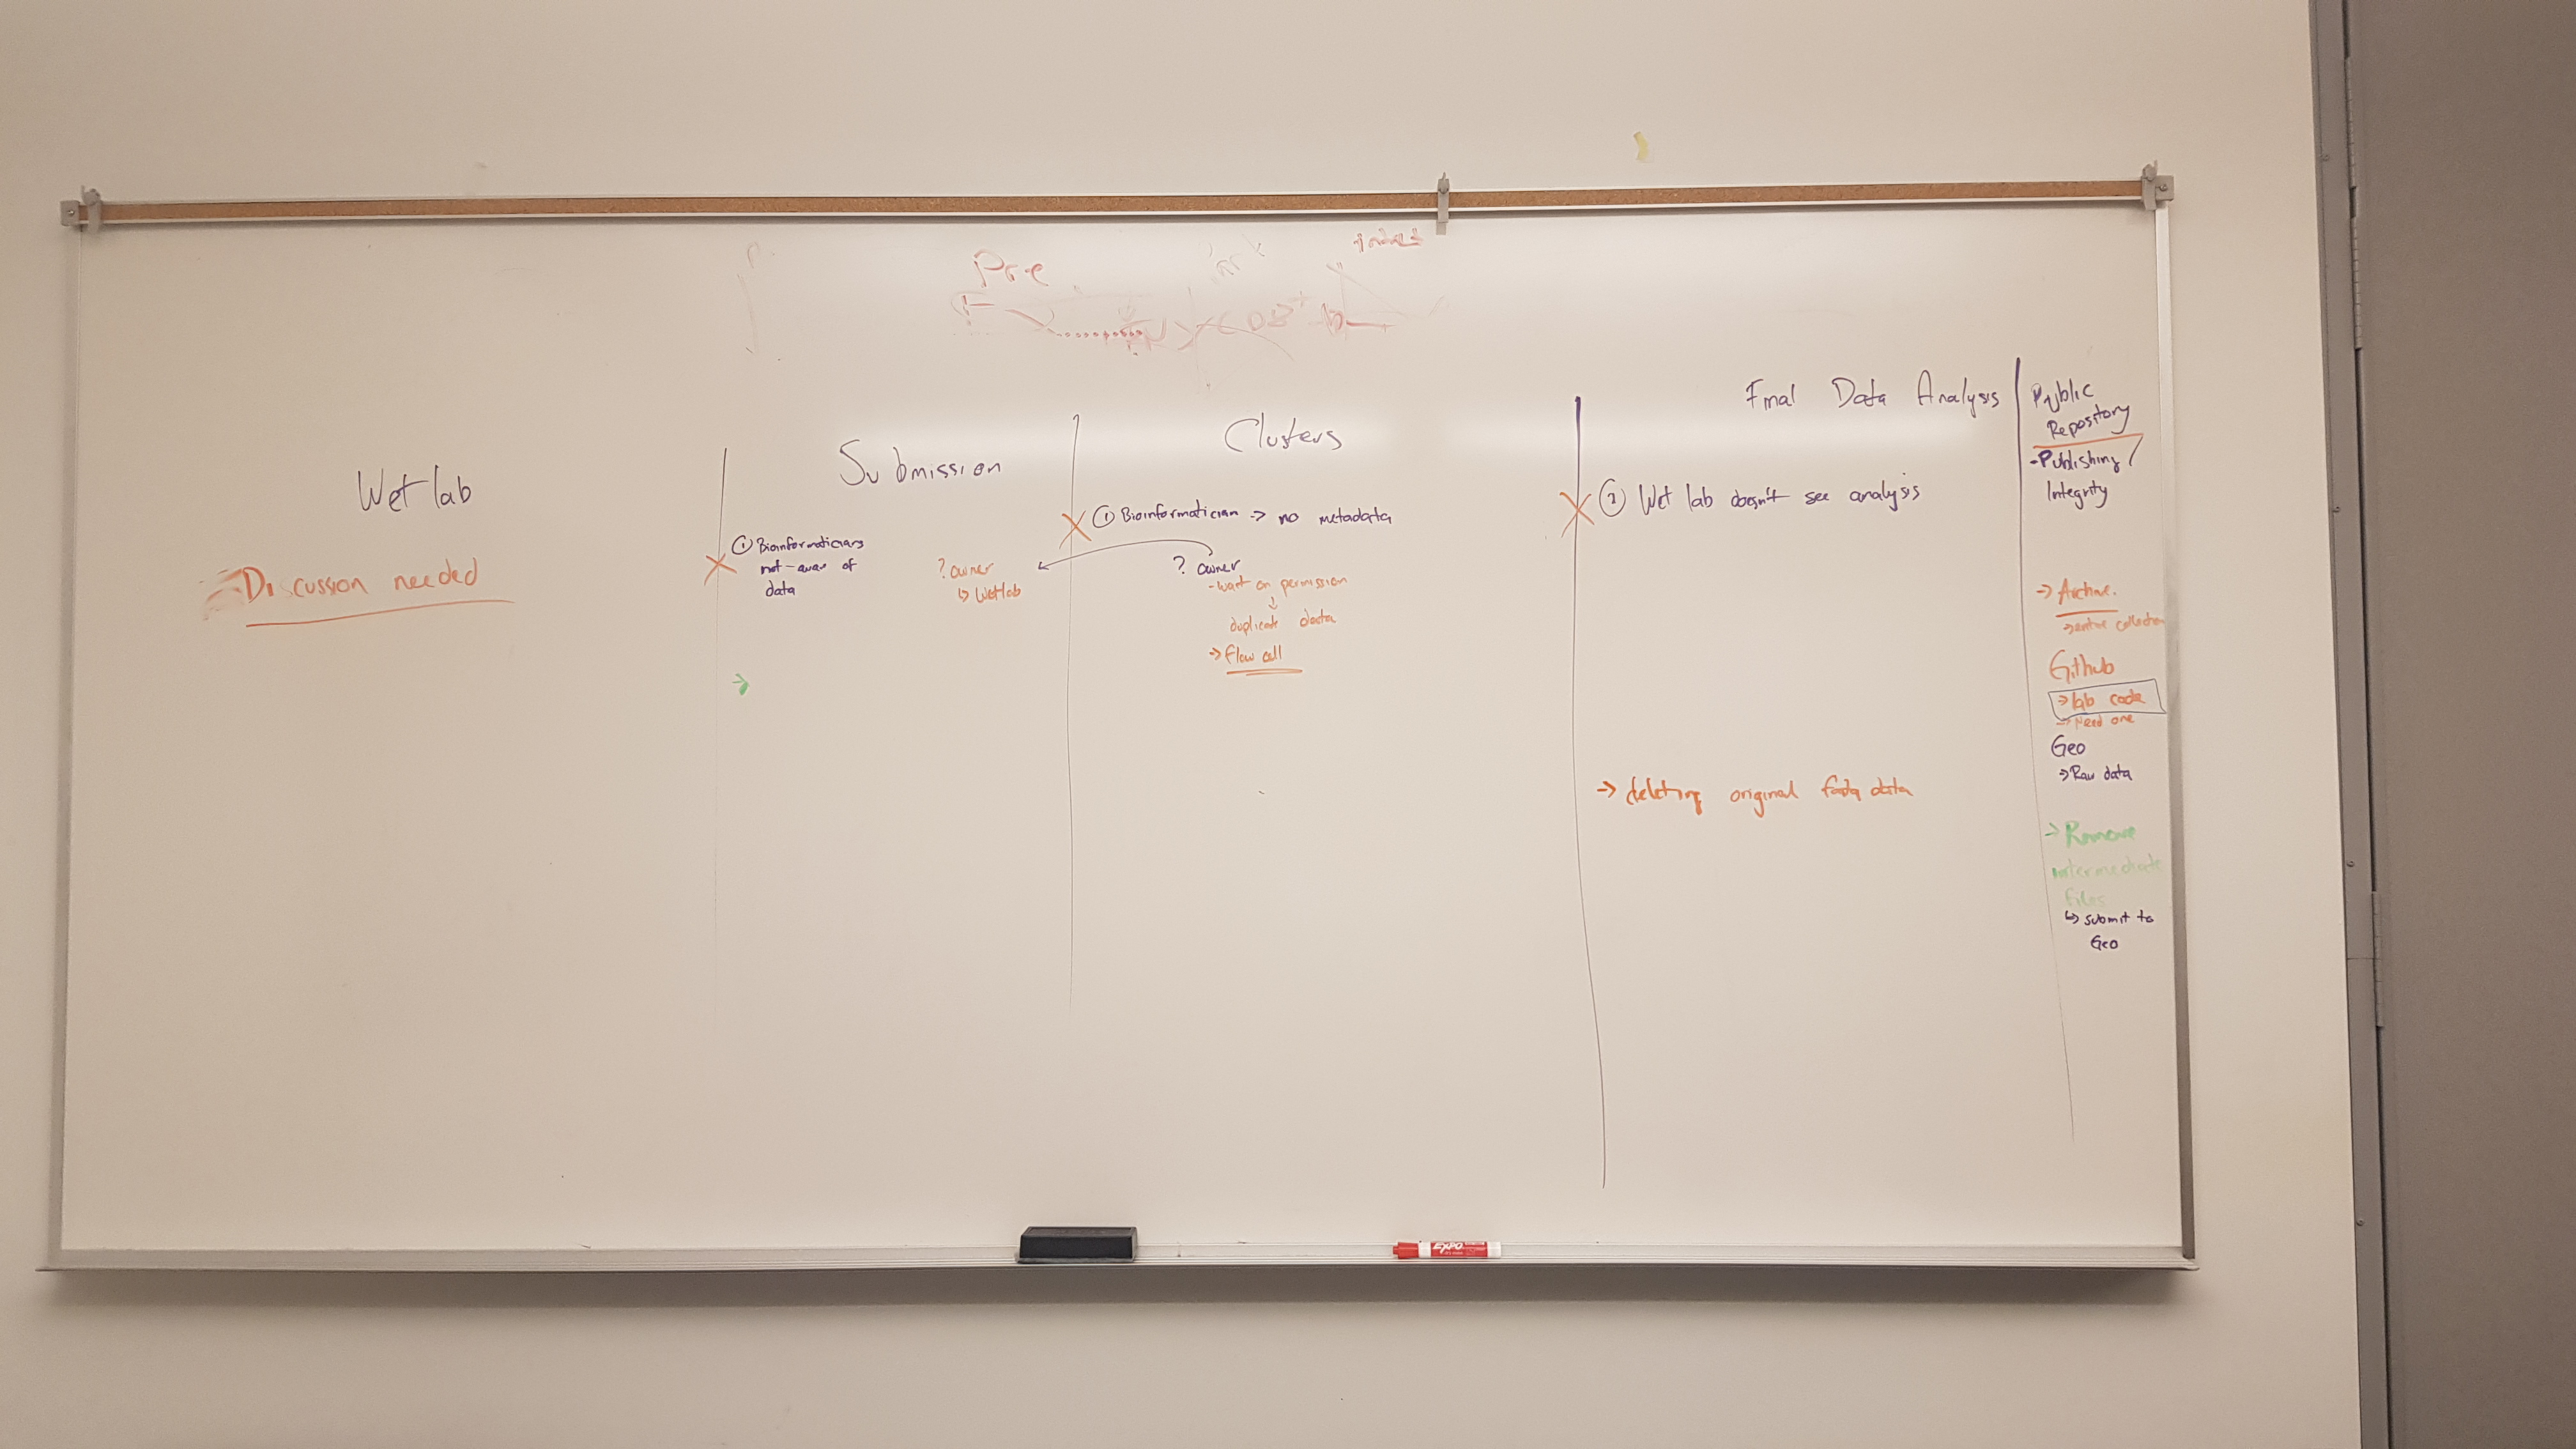 Pre
Wet lab
Discussion needed
Submission
① Bioinformaticians
not-aware of
data
? owner
↳ Wetlab
Clusters
① Bioinformatician → no metadata
? owner
-want on permission
↓
duplicate data
→ flow cell
Final Data Analysis
② Wet lab doesn't see analysis
→ deleting original fastq data
Public
Repository
-Publishing
Integrity
→ Archive.
→ entire collection
Github
→ lab code
→ Need one
Geo
→ Raw data
→ Remove
intermediate
files
↳ submit to
Geo
EXPO